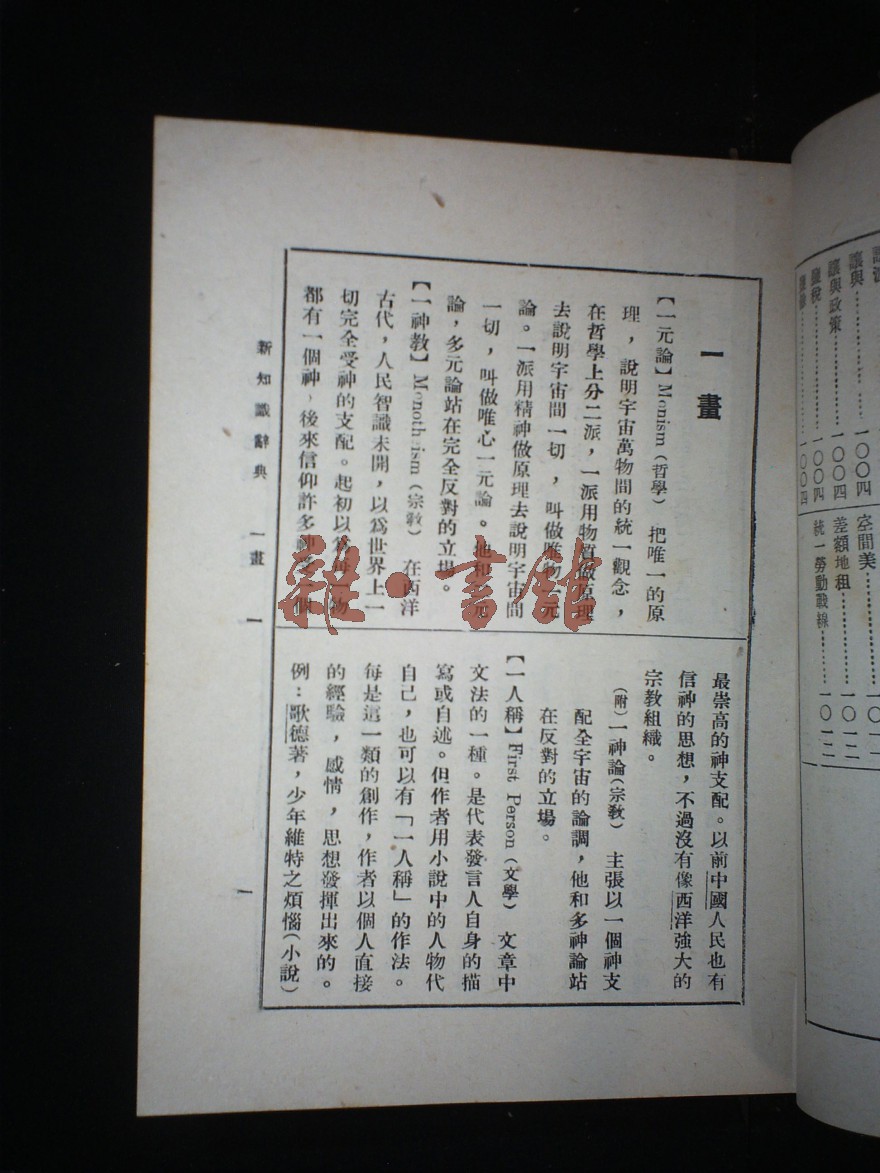 一畫
【一元論】Monism(哲學) 把唯一的原
理,說明宇宙萬物間的統一觀念,
在哲學上分二派,一派用物質做原理
去說明宇宙間一切,叫做唯物一元
論。一派用精神做原理去說明宇宙間
一切,叫做唯心一元論。他和二元
論,多元論站在完全反對的立場。
【一神教】Monotheism(宗敎) 在西洋
古代,人民智識未開,以爲世界上一
切完全受神的支配。起初以爲每一物
都有一個神,後來信仰許多神受一個
最崇高的神支配。以前中國人民也有
信神的思想,不過沒有像西洋強大的
宗教組織。
(附)一神論(宗敎) 主張以一個神支
配全宇宙的論調,他和多神論站
在反對的立場。
【一人稱】First Person(文學) 文章中
文法的一種。是代表發言人自身的描
寫或自述。但作者用小說中的人物代
自己,也可以有「一人稱」的作法。
每是這一類的創作,作者以個人直接
的經驗,感情,思想發揮出來的。
例:歌德著,少年維特之煩惱(小說)
新知識辭典 一畫 一
一
讓與……一〇〇四
讓與政策……一〇〇四
鹽稅……一〇〇四
空間美……一〇一一
差額地租……一〇一二
統一勞動戰線……一〇一二
雜·書館